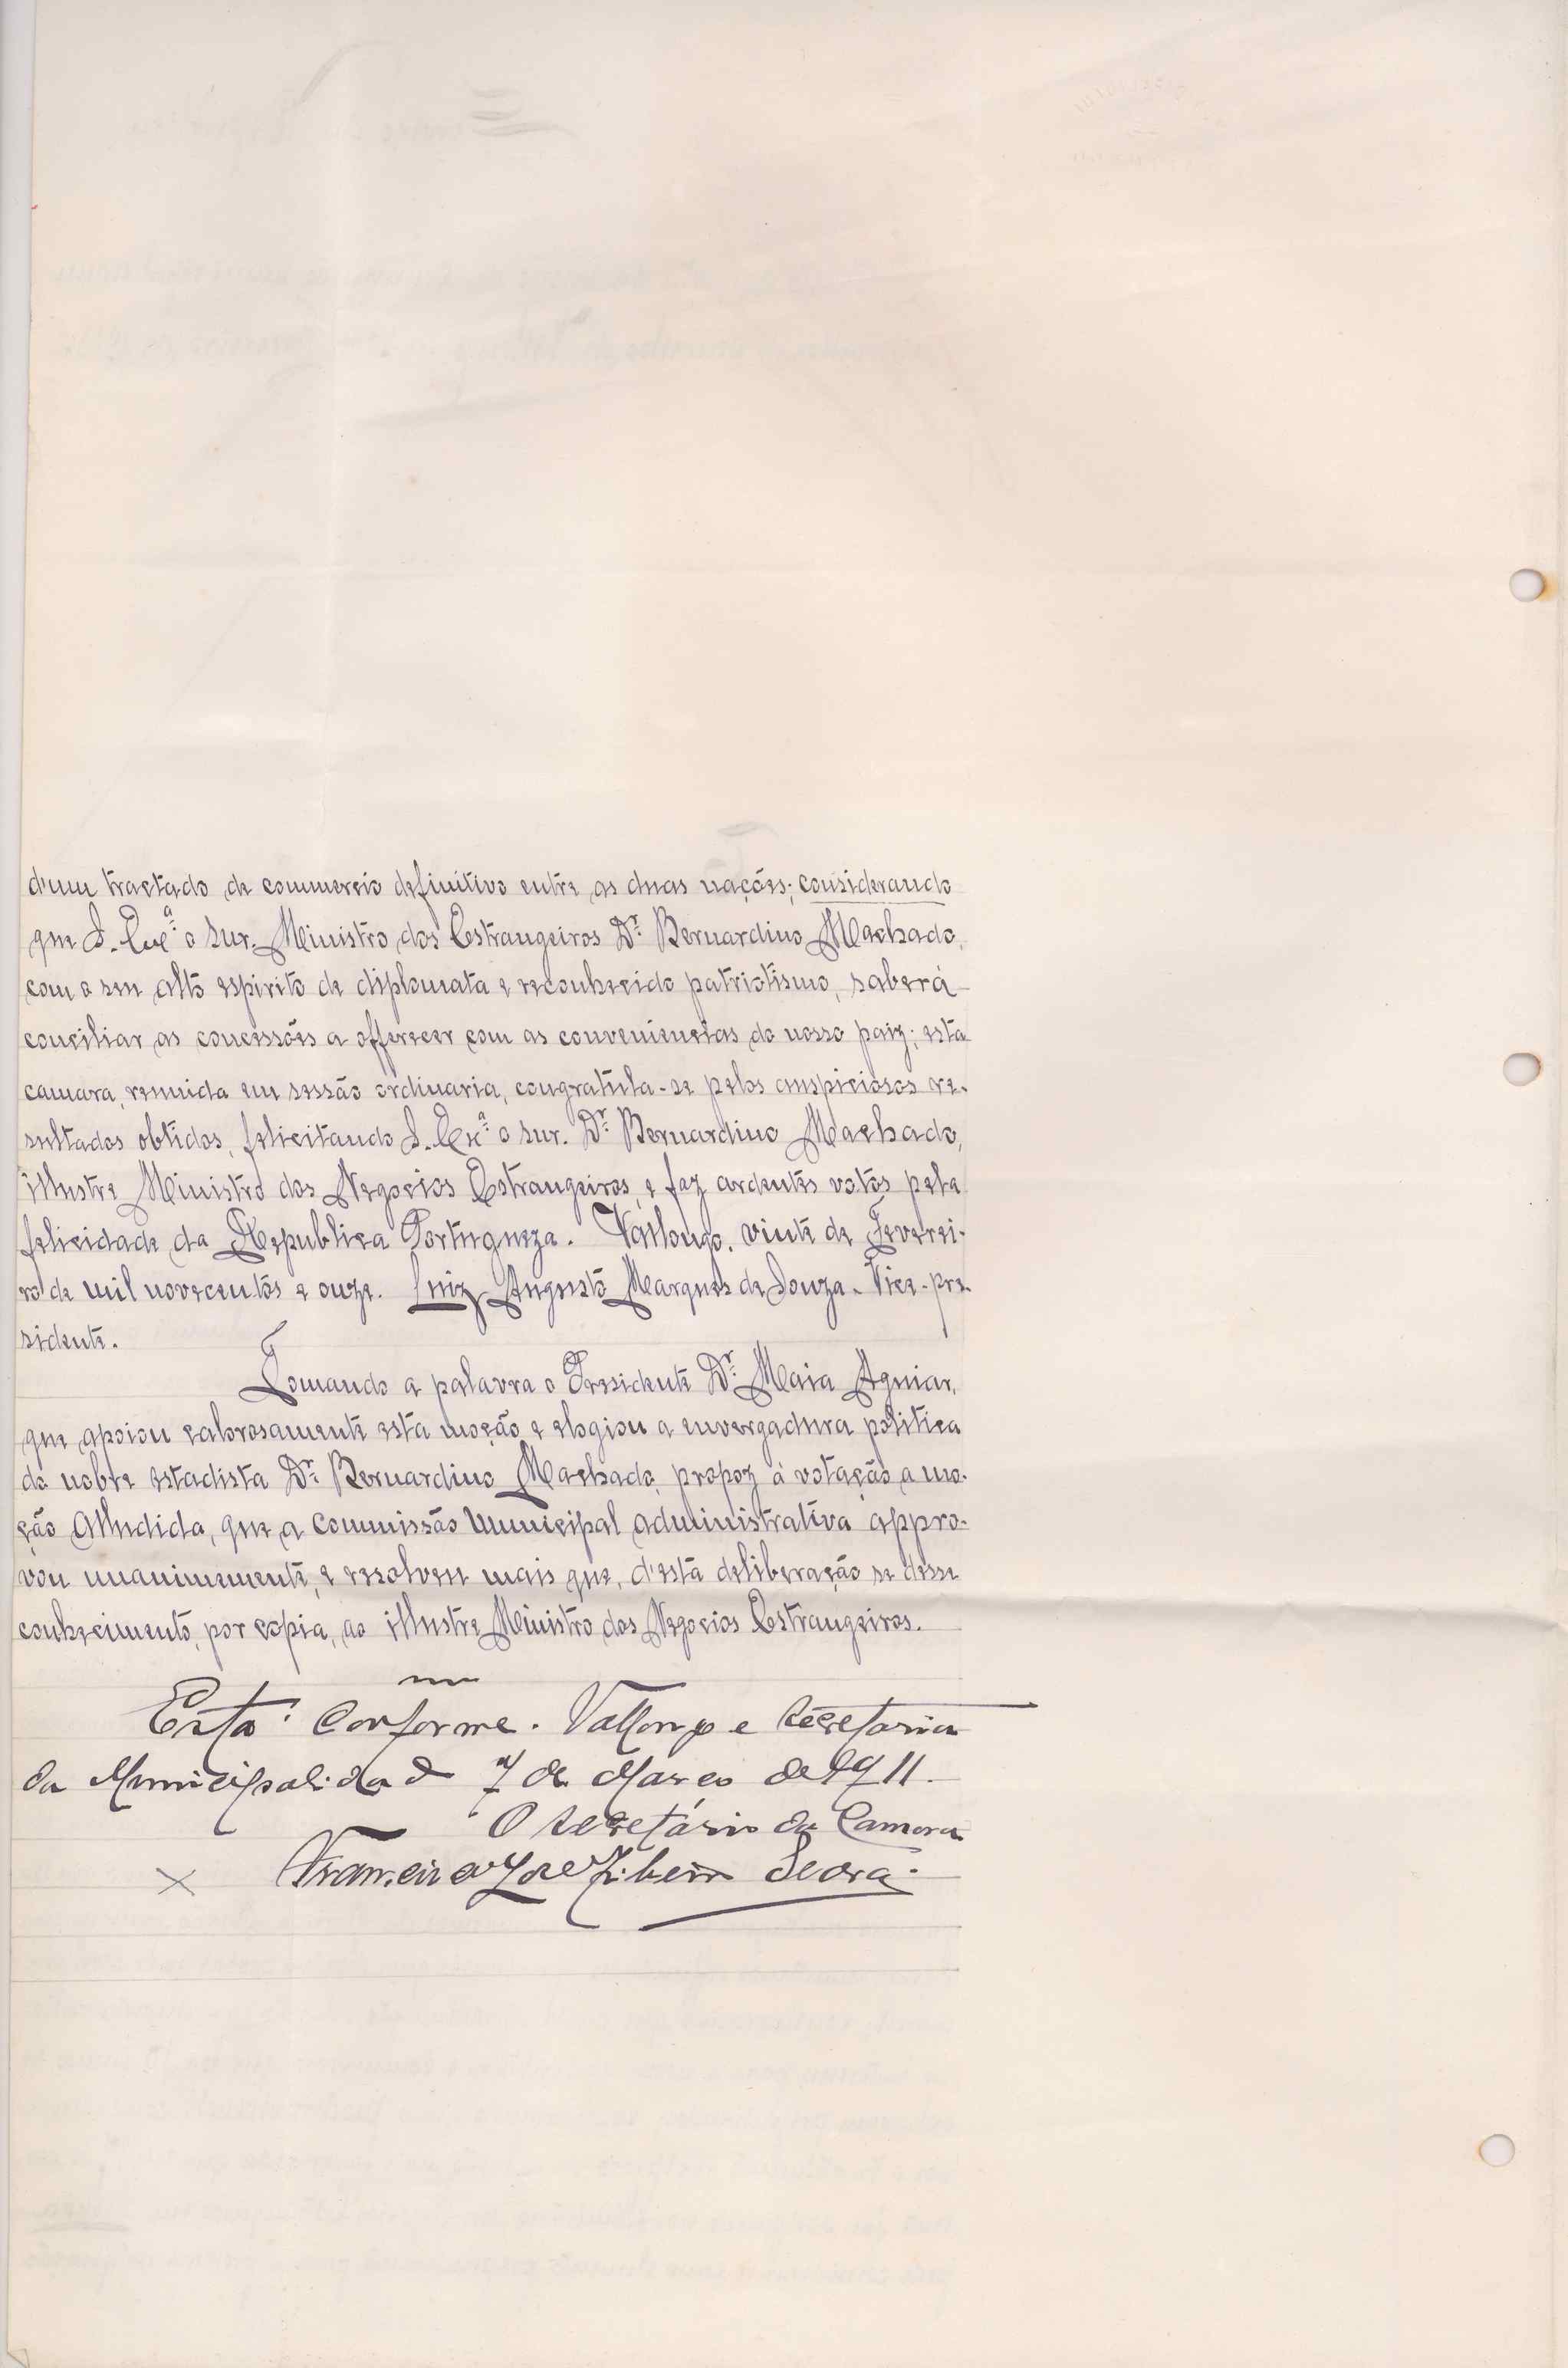 d'um tractado de commercio definitivo entre as duas nações; considerando
que S. Exª o snr. Ministro dos Estrangeiros Dr. Bernardino Machado,
com o seu alto espirito de diplomata e reconhecido patriotismo, saberá
conciliar as concessões a offerecer com as conveniencias do nosso paiz; esta
camara, reunida em sessão ordinaria, congratula-se pelos auspiciosos re-
sultados obtidos, felicitando S. Exª o snr. Dr. Bernardino Machado,
illustre Ministro dos Negocios Estrangeiros, e faz ardentes votos pela
felicidade da Republica Portugueza. Vallongo, vinte de Feverei-
ro de mil novecentos e onze. Luiz Augusto Marques de Souza - Vice-pre-
sidente.
Tomando a palavra o Presidente Dr. Maia Aguiar,
que apoiou calorosamente esta moção e elogiou a envergadura politica
do nobre estadista Dr. Bernardino Machado, propoz á votação a mo-
ção alludida, que a Commissão Municipal administrativa appro-
vou unanimemente, e resolveu mais que, d'esta deliberação se desse
conhecimento, por copia, ao illustre Ministro dos Negocios Estrangeiros.
Está conforme. Vallongo e Secretaria
da Municipalidade 7 de Março de 1911.
O Secretário da Camara
Francisco José Ribeiro Seara